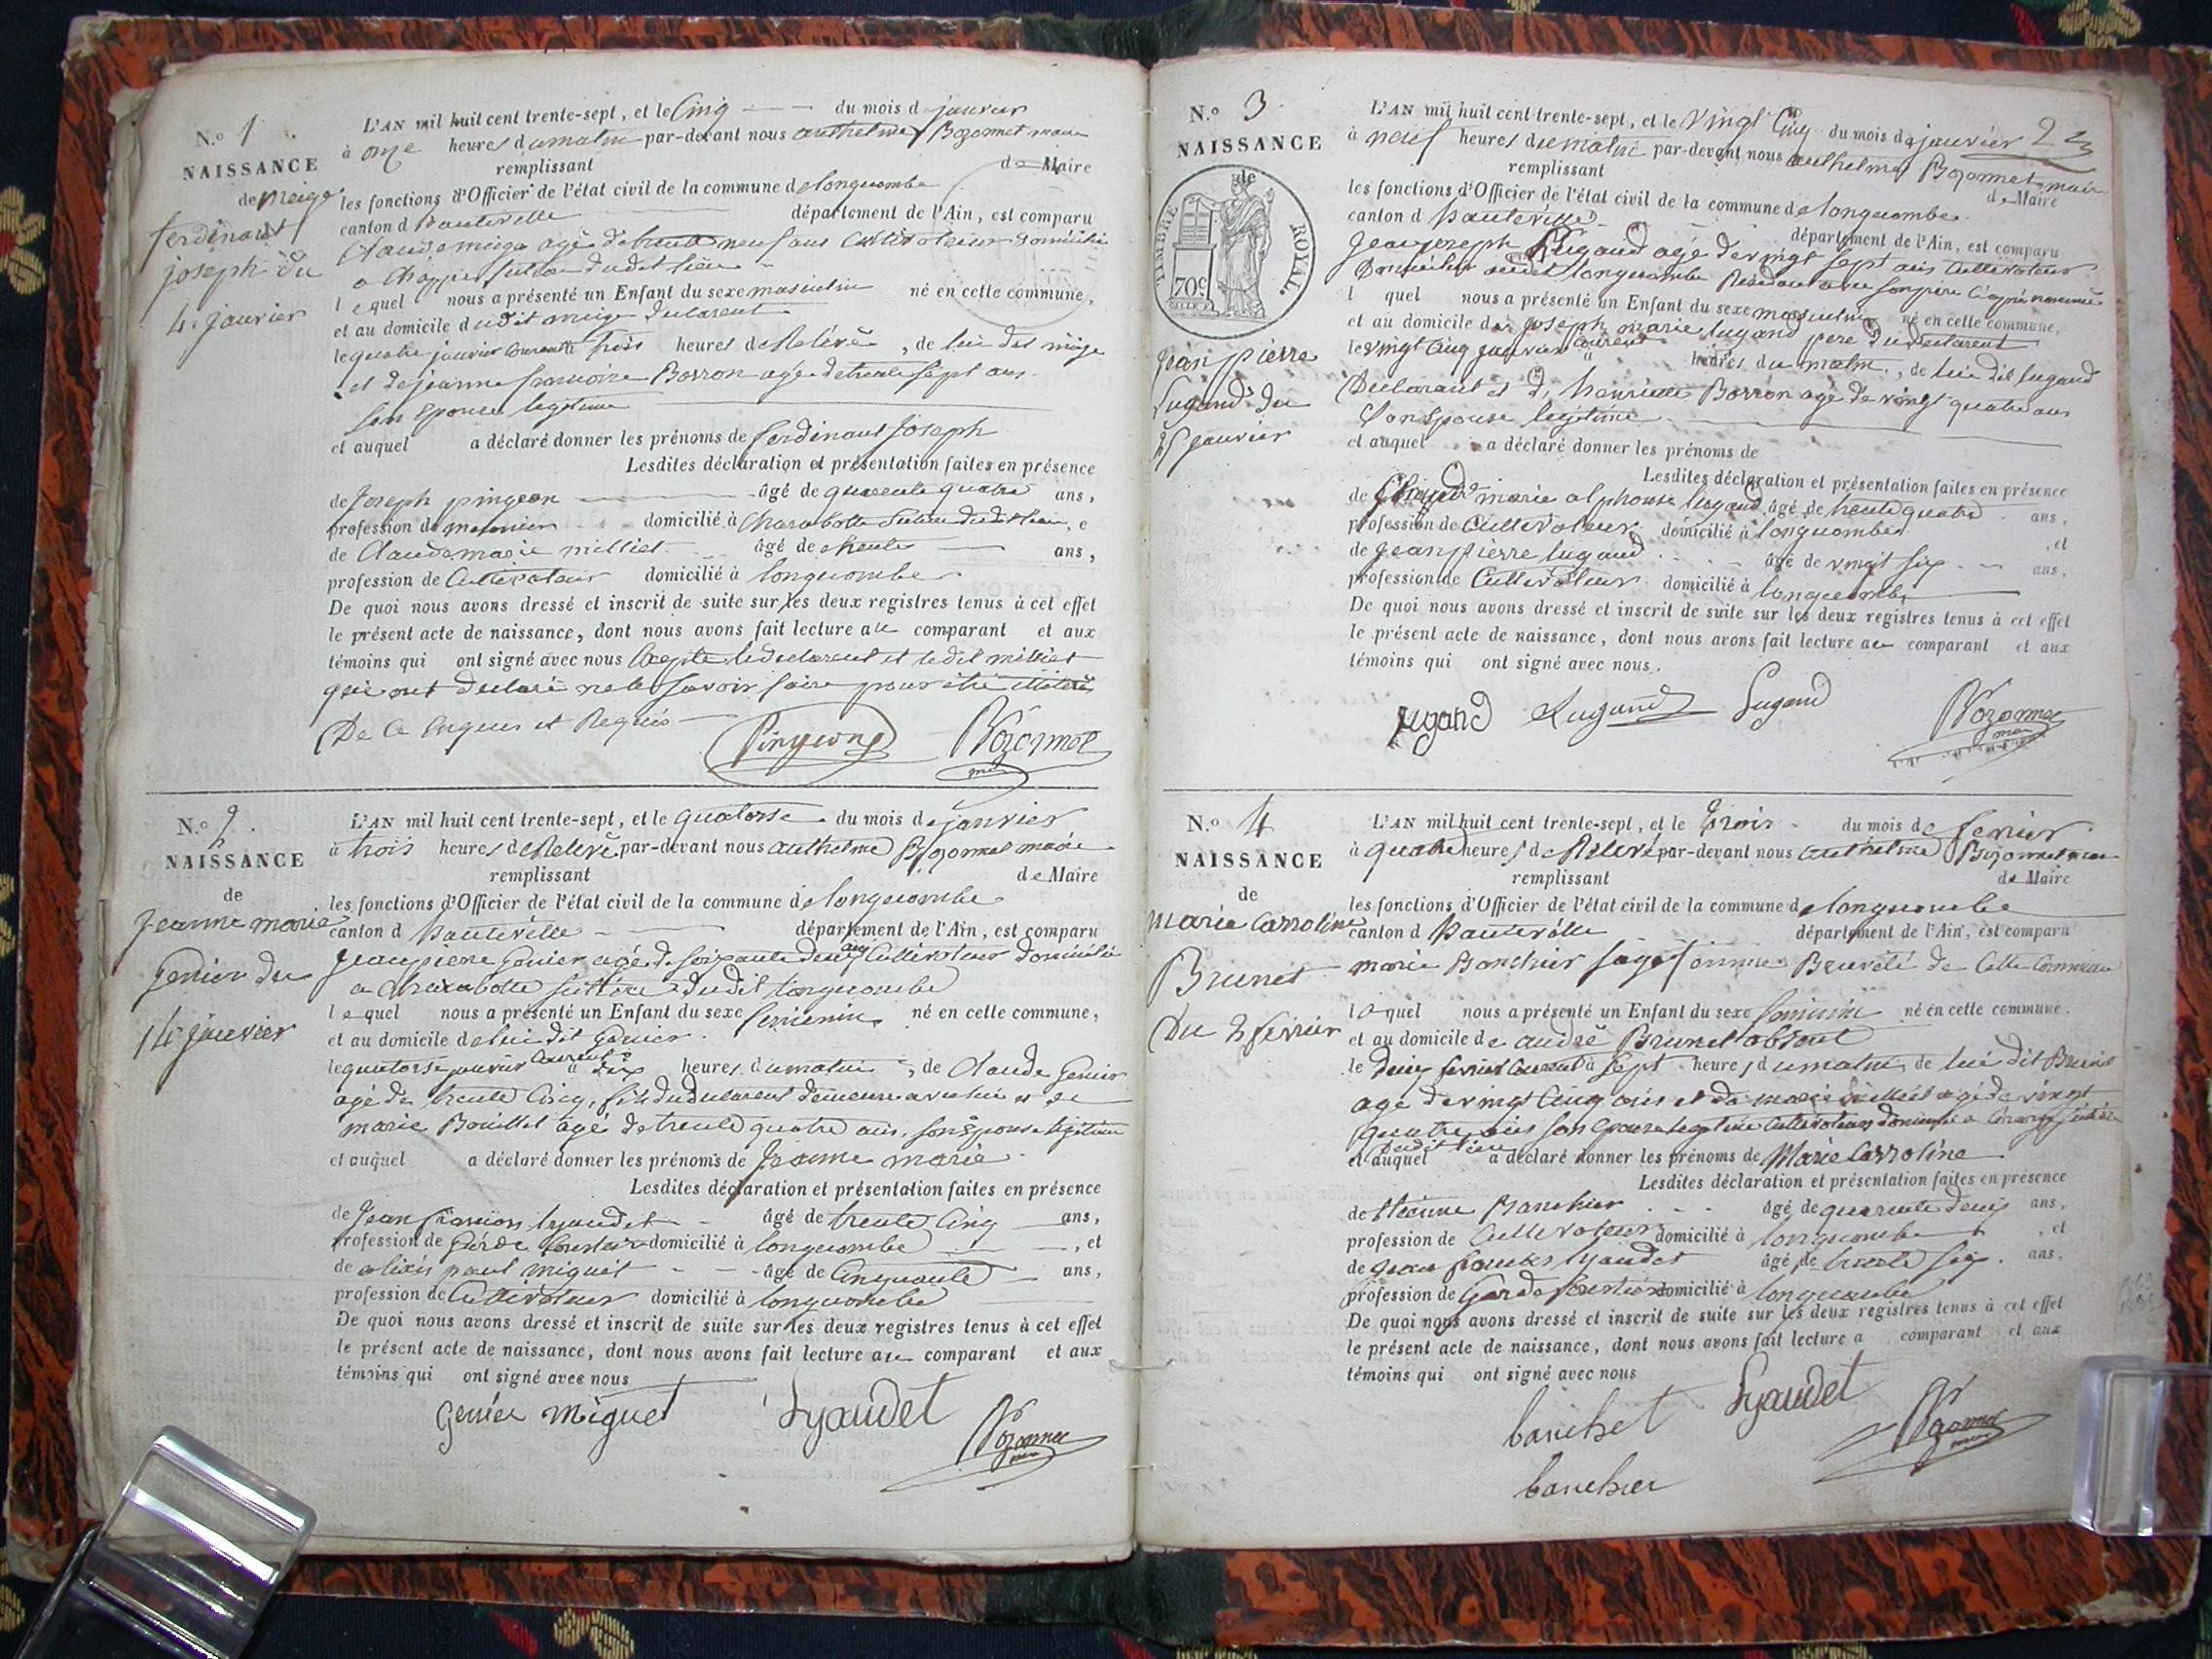 N.o 1
NAISSANCE
de Meige
ferdinant
joseph du
4. janvier
L'AN mil huit cent trente-sept, et le Cinq du mois d janvier
à onze heures du matin par-devant nous anthelme Bozonnet maire
remplissant de Maire
les fonctions d'Officier de l'état civil de la commune de longecombe
canton d hauteville département de l'Ain, est comparu
Claude meige agé de trente neuf ans Cultivateur domicilié
a
lequel nous a présenté un Enfant du sexe masculin né en cette commune,
et au domicile dudit meige declarent
le quatre janvier Courant à trois heures de Relevée, de lui dit meige
et de jeanne francoise Borron agé de trente sept ans
son Epouse legitime
et auquel a déclaré donner les prénoms de ferdinant joseph
Lesdites déclaration et présentation faites en présence
de Joseph pingeon âgé de quarente quatre ans,
profession de meunier domicilié à Charabotte dudit lieu, e
de Claude marie milliet âgé de trente ans,
profession de Cultivateur domicilié à longecombe
De quoi nous avons dressé et inscrit de suite sur les deux registres tenus à cet effet
le présent acte de naissance, dont nous avons fait lecture au comparant et aux
témoins qui ont signé avec nous Excepte le declarent et le dit milliet
qui ont declaré ne le savoir faire pour être illiteré
De Ce Enquis et Requis
Pingeong Bozonnet
N.o 2.
NAISSANCE
de
Jeanne marie
Genier du
14 janvier
L'AN mil huit cent trente-sept, et le quatorse du mois de janvier
à trois heures de Relevé par-devant nous anthelme Bozonnet maire
remplissant de Maire
les fonctions d'Officier de l'état civil de la commune de longecombe
canton d hauteville département de l'Ain, est comparu
Jean pierre Genier agé de soixante deux ans Cultivateur domicilié
a Charabotte dudit longecombe
lequel nous a présenté un Enfant du sexe feminin né en cette commune,
et au domicile de lui dit Genier
le quatorse janvier Courant à dix heures du matin, de Claude Genier
agé de trente Cinq, fils du declarent demeure avec lui et de
marie Bouillet agé de trente quatre ans, son Epouse legitime
et auquel a déclaré donner les prénoms de Jeanne marie
Lesdites déclaration et présentation faites en présence
de Jean francois lyaudet âgé de trente Cinq ans,
profession de Garde forestier domicilié à longecombe, et
de alixis paul miguet âgé de Cinquante ans,
profession de Cultivateur domicilié à longecombe
De quoi nous avons dressé et inscrit de suite sur les deux registres tenus à cet effet
le présent acte de naissance, dont nous avons fait lecture au comparant et aux
témoins qui ont signé avec nous
Genier Miguet Lyaudet Bozonnet
maire
N.o 3.
NAISSANCE
de
TIMBRE ROYAL.
70c
Jean pierre
Lugand du
25 janvier
L'AN mil huit cent trente-sept, et le Vingt Cinq du mois de janvier 2
à neuf heures du matin par-devant nous anthelme Bozonnet maire
remplissant de Maire
les fonctions d'Officier de l'état civil de la commune de longecombe
canton d hauteville département de l'Ain, est comparu
Jean joseph Lugand agé de vingt sept ans Cultivateur
Domicilier audit longecombe Residant avec son père Ci après nommé
l quel nous a présenté un Enfant du sexe masculin né en cette commune,
et au domicile de joseph marie lugand pere du declarent
le vingt Cinq janvier Courent à heures du matin, de lui dit lugand
Declarant et de henriette Borron agé de vingt quatre ans
son Epouse legitime
et auquel a déclaré donner les prénoms de
Lesdites déclaration et présentation faites en présence
de marie alphonse lugand âgé de trente quatre ans,
profession de Cultivateur domicilié à longecombe, et
de jean pierre lugand âgé de vingt six ans,
profession de Cultivateur domicilié à longecombe
De quoi nous avons dressé et inscrit de suite sur les deux registres tenus à cet effet
le présent acte de naissance, dont nous avons fait lecture au comparant et aux
témoins qui ont signé avec nous.
lugand Lugand Lugand Bozonnet
maire
N.o 4
NAISSANCE
de
Marie Carroline
Brunet
Du 2 fevrier
L'AN mil huit cent trente-sept, et le Trois du mois de fevrier
à quatre heures de Relevé par-devant nous anthelme Bozonnet maire
remplissant de Maire
les fonctions d'Officier de l'état civil de la commune de longecombe
canton d hauteville département de l'Ain, est comparu
marie Banchier sage femme Brevelé de Cette Commune
laquel nous a présenté un Enfant du sexe feminin né en cette commune,
et au domicile de andré Brunet absent
le deux fevrier Courent à sept heures du matin de lui dit Brunet
agé de vingt Cinq ans et de marie milliet agé de vingt
quatre ans son Epouse legitime Cultivateur domicilié a
dudit lieu
et auquel a déclaré donner les prénoms de Marie Carroline
Lesdites déclaration et présentation faites en présence
de Etienne Banchier âgé de quarente deux ans,
profession de Cultivateur domicilié à longecombe, et
de jean francois lyaudet âgé de trente six ans,
profession de Garde forestier domicilié à longecombe
De quoi nous avons dressé et inscrit de suite sur les deux registres tenus à cet effet
le présent acte de naissance, dont nous avons fait lecture a comparant et aux
témoins qui ont signé avec nous
banchet Lyaudet Bozonnet
maire
banchier